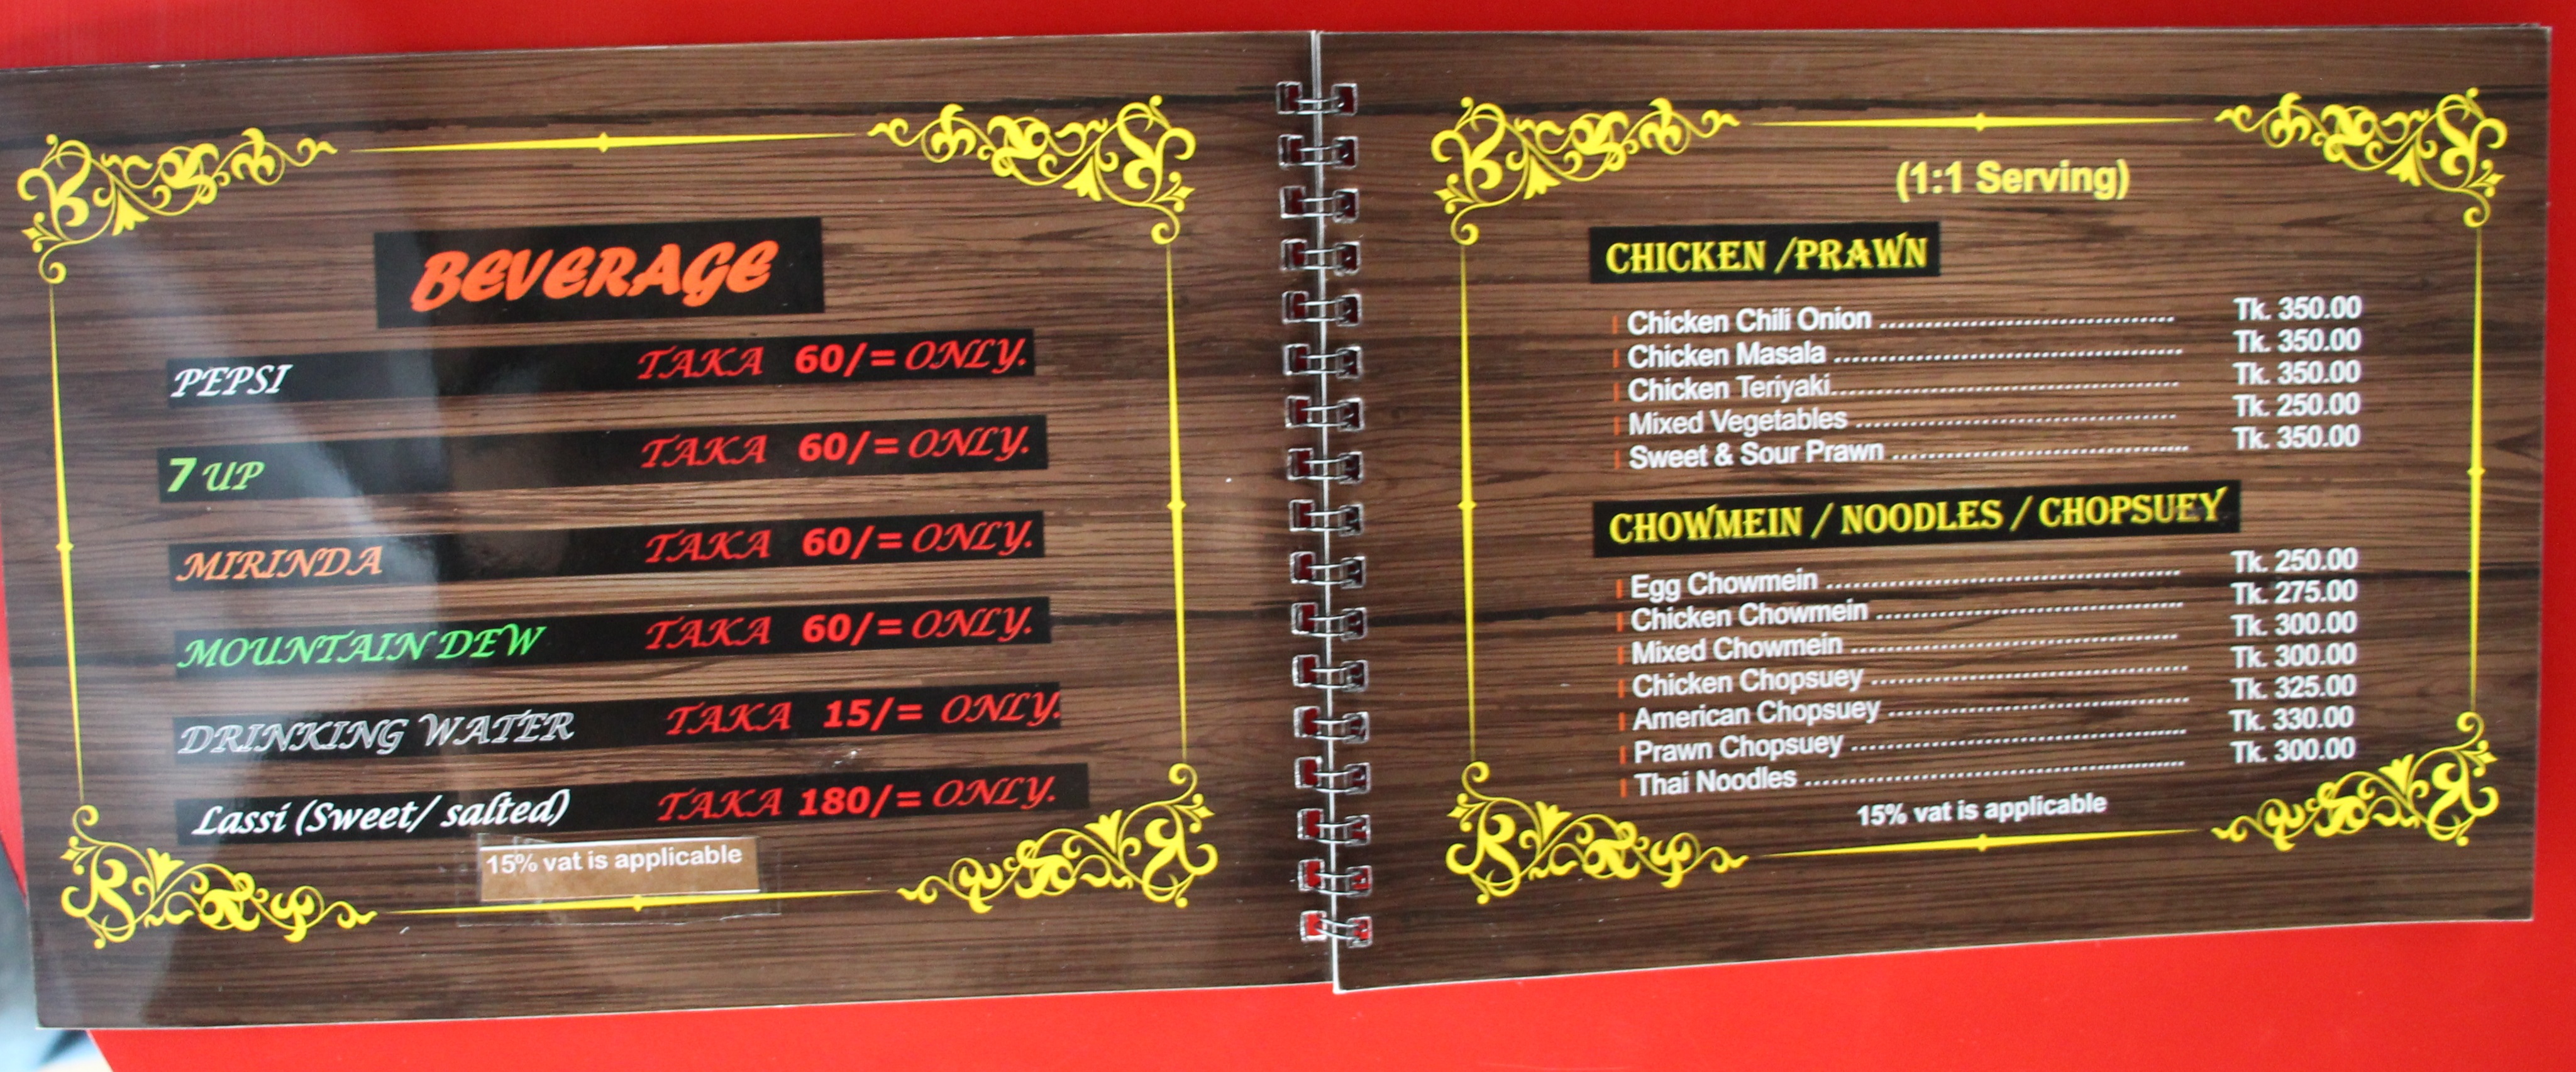 BEVERAGE
PEPSI TAKA 60/= ONLY.
7 UP TAKA 60/= ONLY.
MIRINDA TAKA 60/= ONLY.
MOUNTAIN DEW TAKA 60/= ONLY.
DRINKING WATER TAKA 15/= ONLY.
Lassi (Sweet/ salted) TAKA 180/= ONLY.
15% vat is applicable
(1:1 Serving)
CHICKEN /PRAWN
Chicken Chili Onion ................................ Tk. 350.00
Chicken Masala ................................ Tk. 350.00
Chicken Teriyaki................................ Tk. 350.00
Mixed Vegetables ................................ Tk. 250.00
Sweet & Sour Prawn ................................ Tk. 350.00
CHOWMEIN / NOODLES / CHOPSUEY
Egg Chowmein ................................ Tk. 250.00
Chicken Chowmein ................................ Tk. 275.00
Mixed Chowmein ................................ Tk. 300.00
Chicken Chopsuey ................................ Tk. 300.00
American Chopsuey ................................ Tk. 325.00
Prawn Chopsuey ................................ Tk. 330.00
Thai Noodles ................................ Tk. 300.00
15% vat is applicable